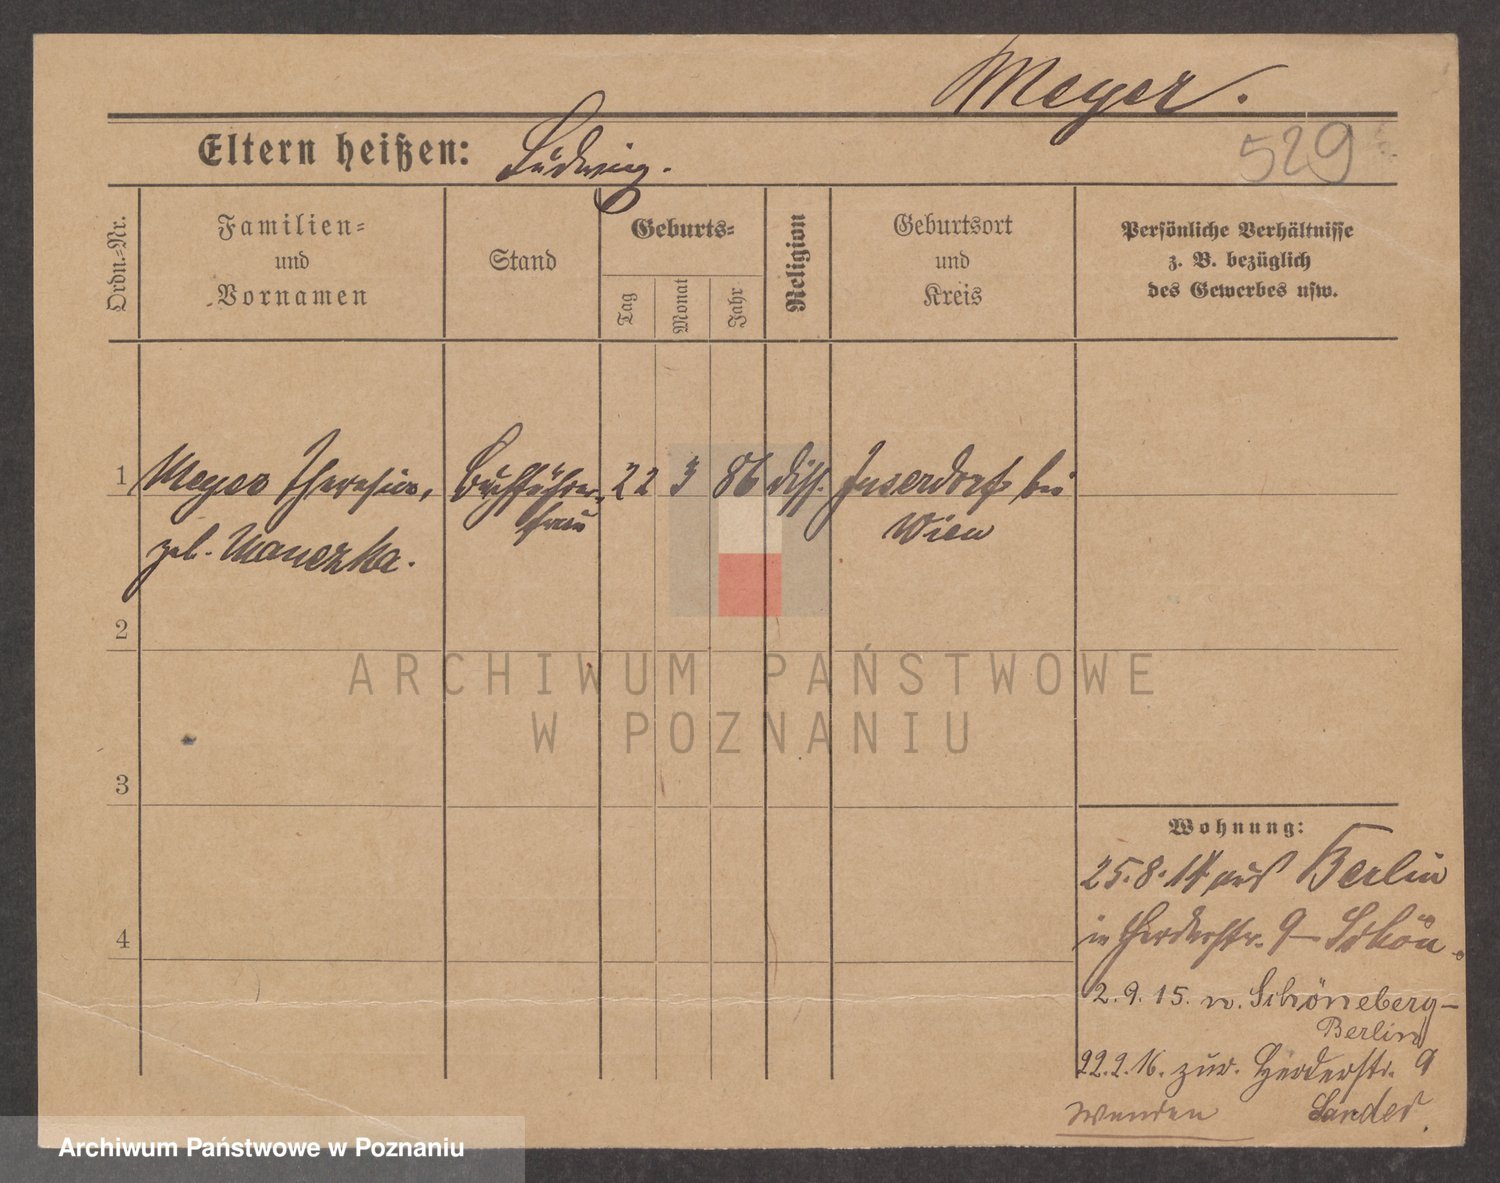 Meyer.
529
Eltern heißen: Ludwig.
Ordn.=Nr.
Familien=
und
Vornamen
Stand
Geburts=
Tag
Monat
Jahr
Religion
Geburtsort
und
Kreis
Persönliche Verhältnisse
z. B. bezüglich
des Gewerbes usw.
1 Meyer Theresia, Buchführer- 22 3 86 diss. Inserdorf bei
frau Wien
geb. Maneszka.
2
3
4
ARCHIWUM PAŃSTWOWE
W POZNANIU
Wohnung:
25.8.14 aus Berlin
in Herderstr. 9 – Schön.
2.9.15. n. Schöneberg–
Berlin
22.2.16. zur. Herderstr. 9
Sander.
Wenden
Archiwum Państwowe w Poznaniu